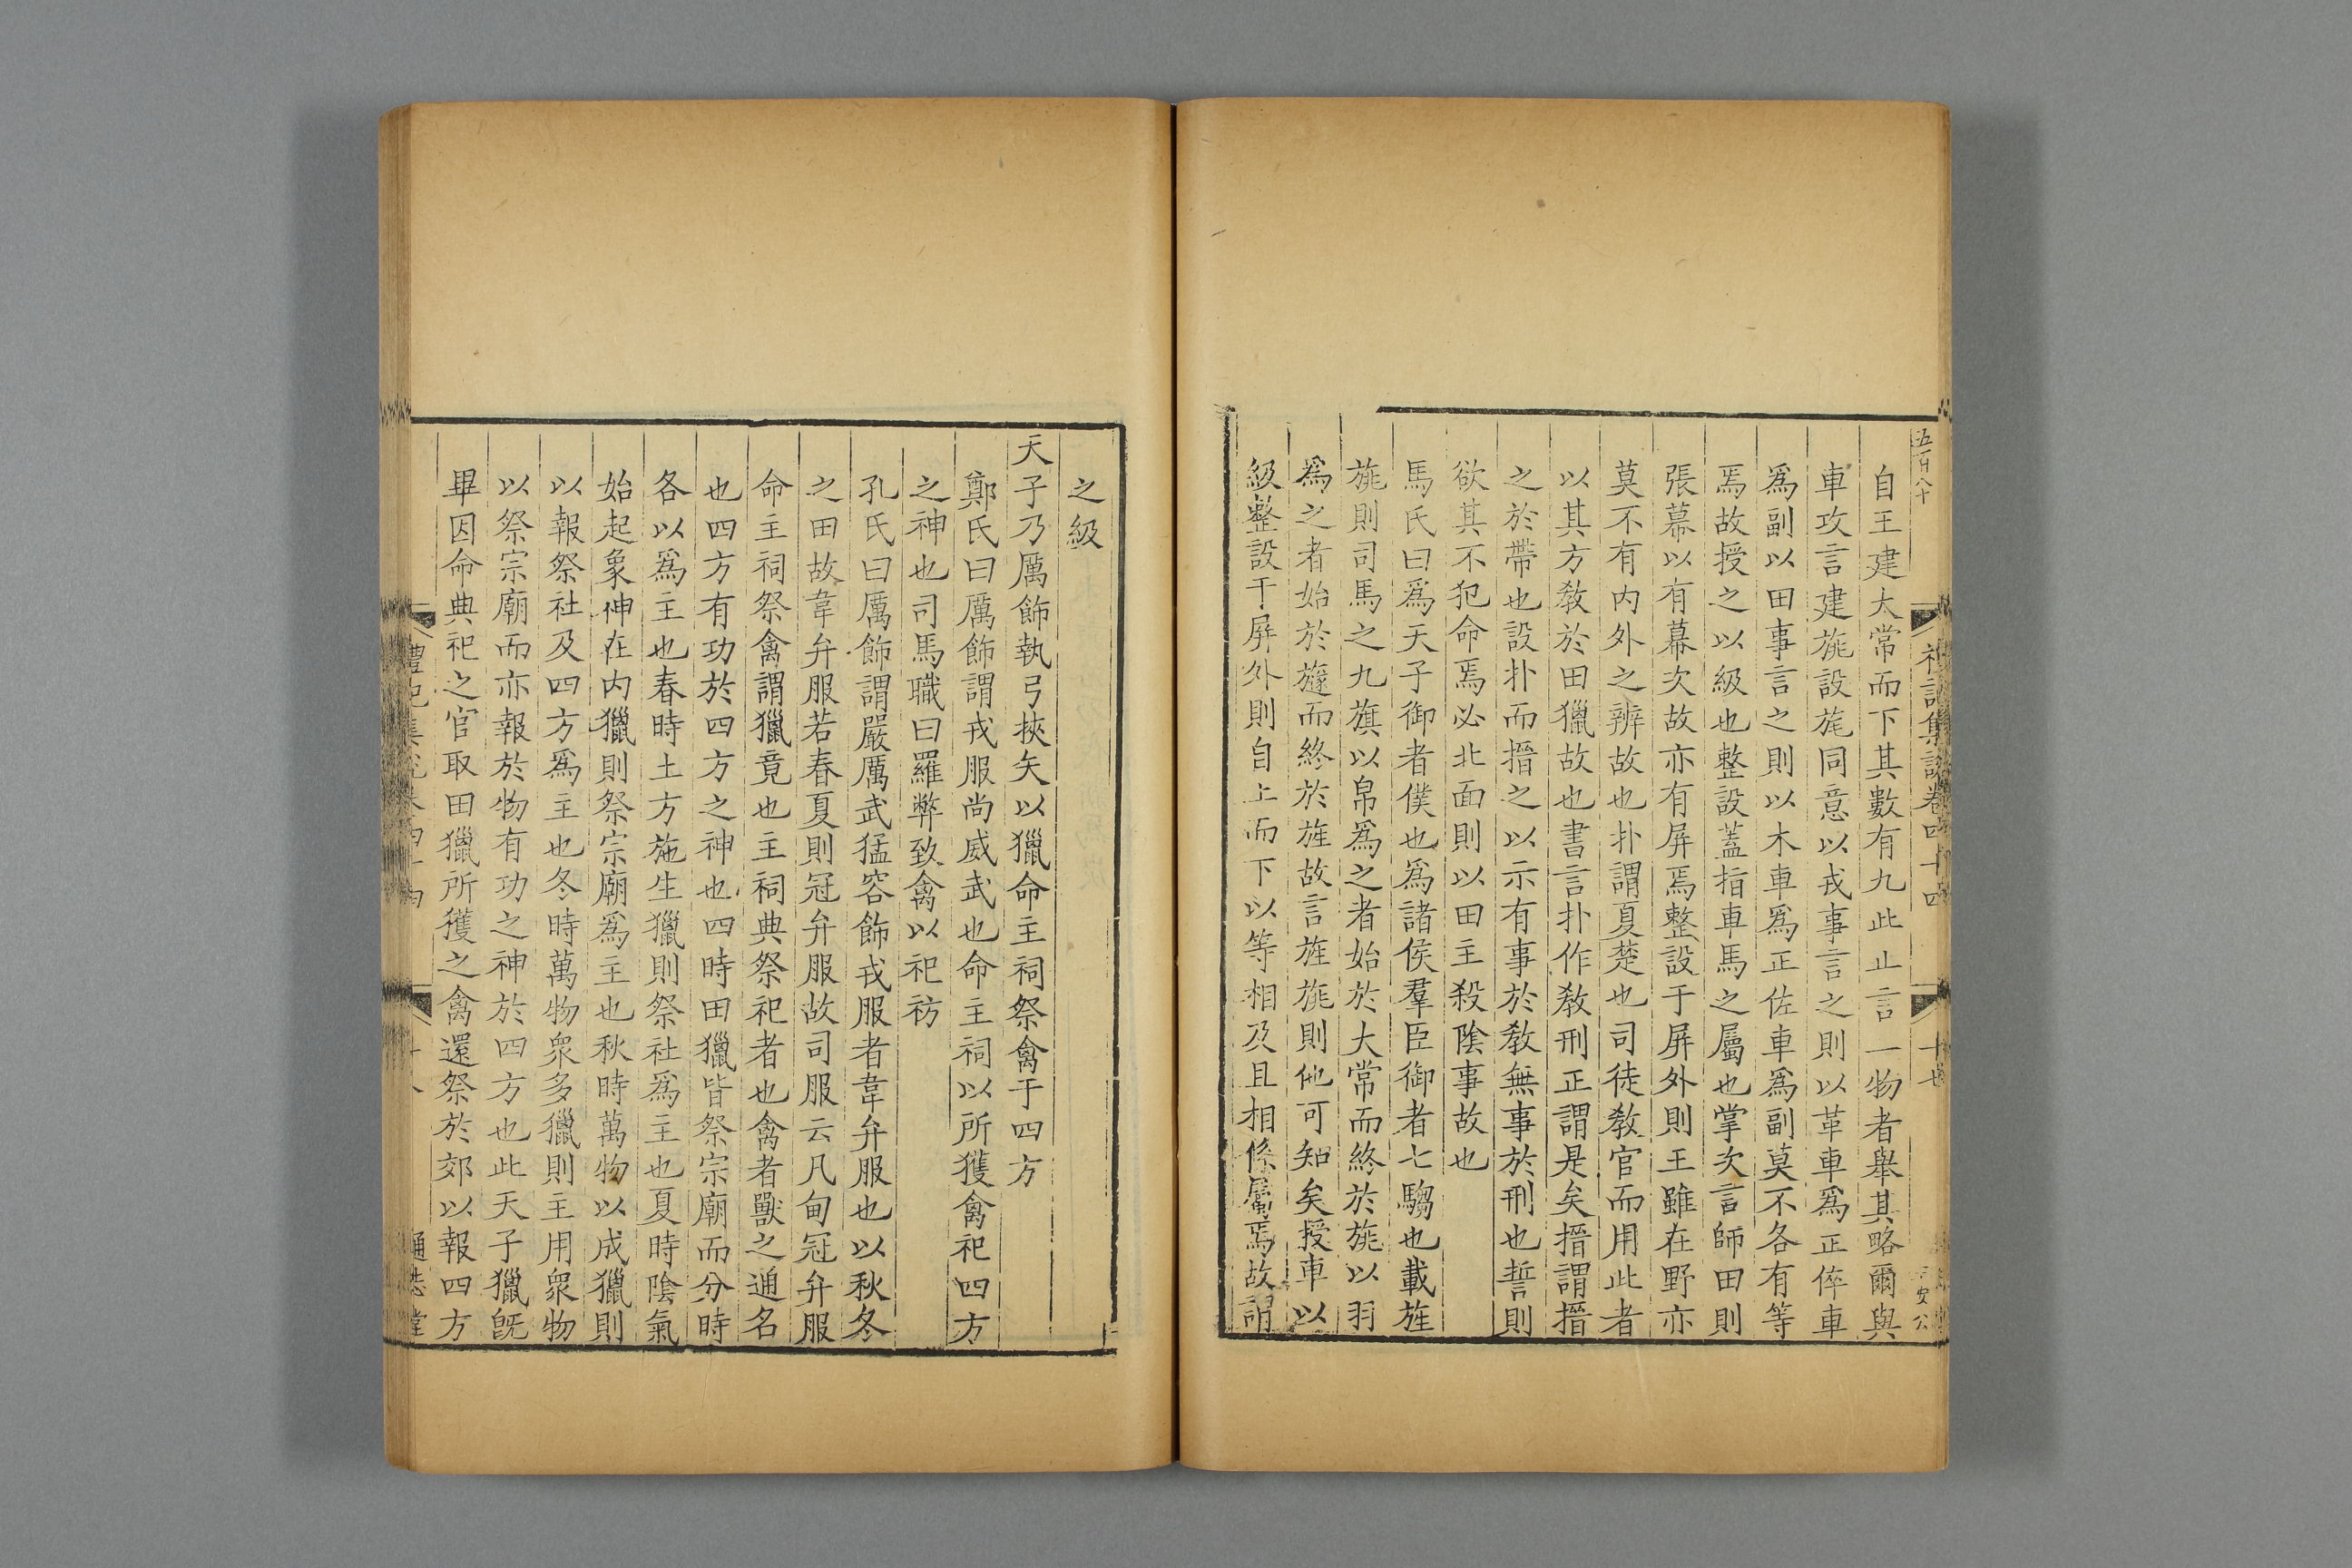 五百八十
禮記集說卷四十四
十七
自王建大常而下其數有九此止言一物者舉其略爾與
車攻言建旐設旄同意以戎事言之則以革車爲正倅車
爲副以田事言之則以木車爲正佐車爲副莫不各有等
焉故授之以級也整設蓋指車馬之屬也掌次言師田則
張幕以有幕次故亦有屏焉整設于屏外則王雖在野亦
莫不有内外之辨故也扑謂夏楚也司徒教官而用此者
以其方教於田獵故也書言扑作教刑正謂是矣搢謂搢
之於帶也設扑而搢之以示有事於教無事於刑也誓則
欲其不犯命焉必北面則以田主殺陰事故也
馬氏曰爲天子御者僕也爲諸侯羣臣御者七騶也載旌
旐則司馬之九旗以帛爲之者始於大常而終於旐以羽
爲之者始於旞而終於旌故言旌旐則他可知矣授車以
級整設于屏外則自上而下以等相及且相係屬焉故謂
之級
天子乃厲飾執弓挾矢以獵命主祠祭禽于四方
鄭氏曰厲飾謂戎服尚威武也命主祠以所獲禽祀四方
之神也司馬職曰羅弊致禽以祀祊
孔氏曰厲飾謂嚴厲武猛容飾戎服者韋弁服也以秋冬
之田故韋弁服若春夏則冠弁服故司服云凡甸冠弁服
命主祠祭禽謂獵竟也主祠典祭祀者也禽者獸之通名
也四方有功於四方之神也四時田獵皆祭宗廟而分時
各以爲主也春時土方施生獵則祭社爲主也夏時陰氣
始起象神在内獵則祭宗廟爲主也秋時萬物以成獵則
以報祭社及四方爲主也冬時萬物衆多獵則主用衆物
以祭宗廟而亦報於物有功之神於四方也此天子獵旣
畢因命典祀之官取田獵所獲之禽還祭於郊以報四方
禮記集說卷四十四
十八
通志堂